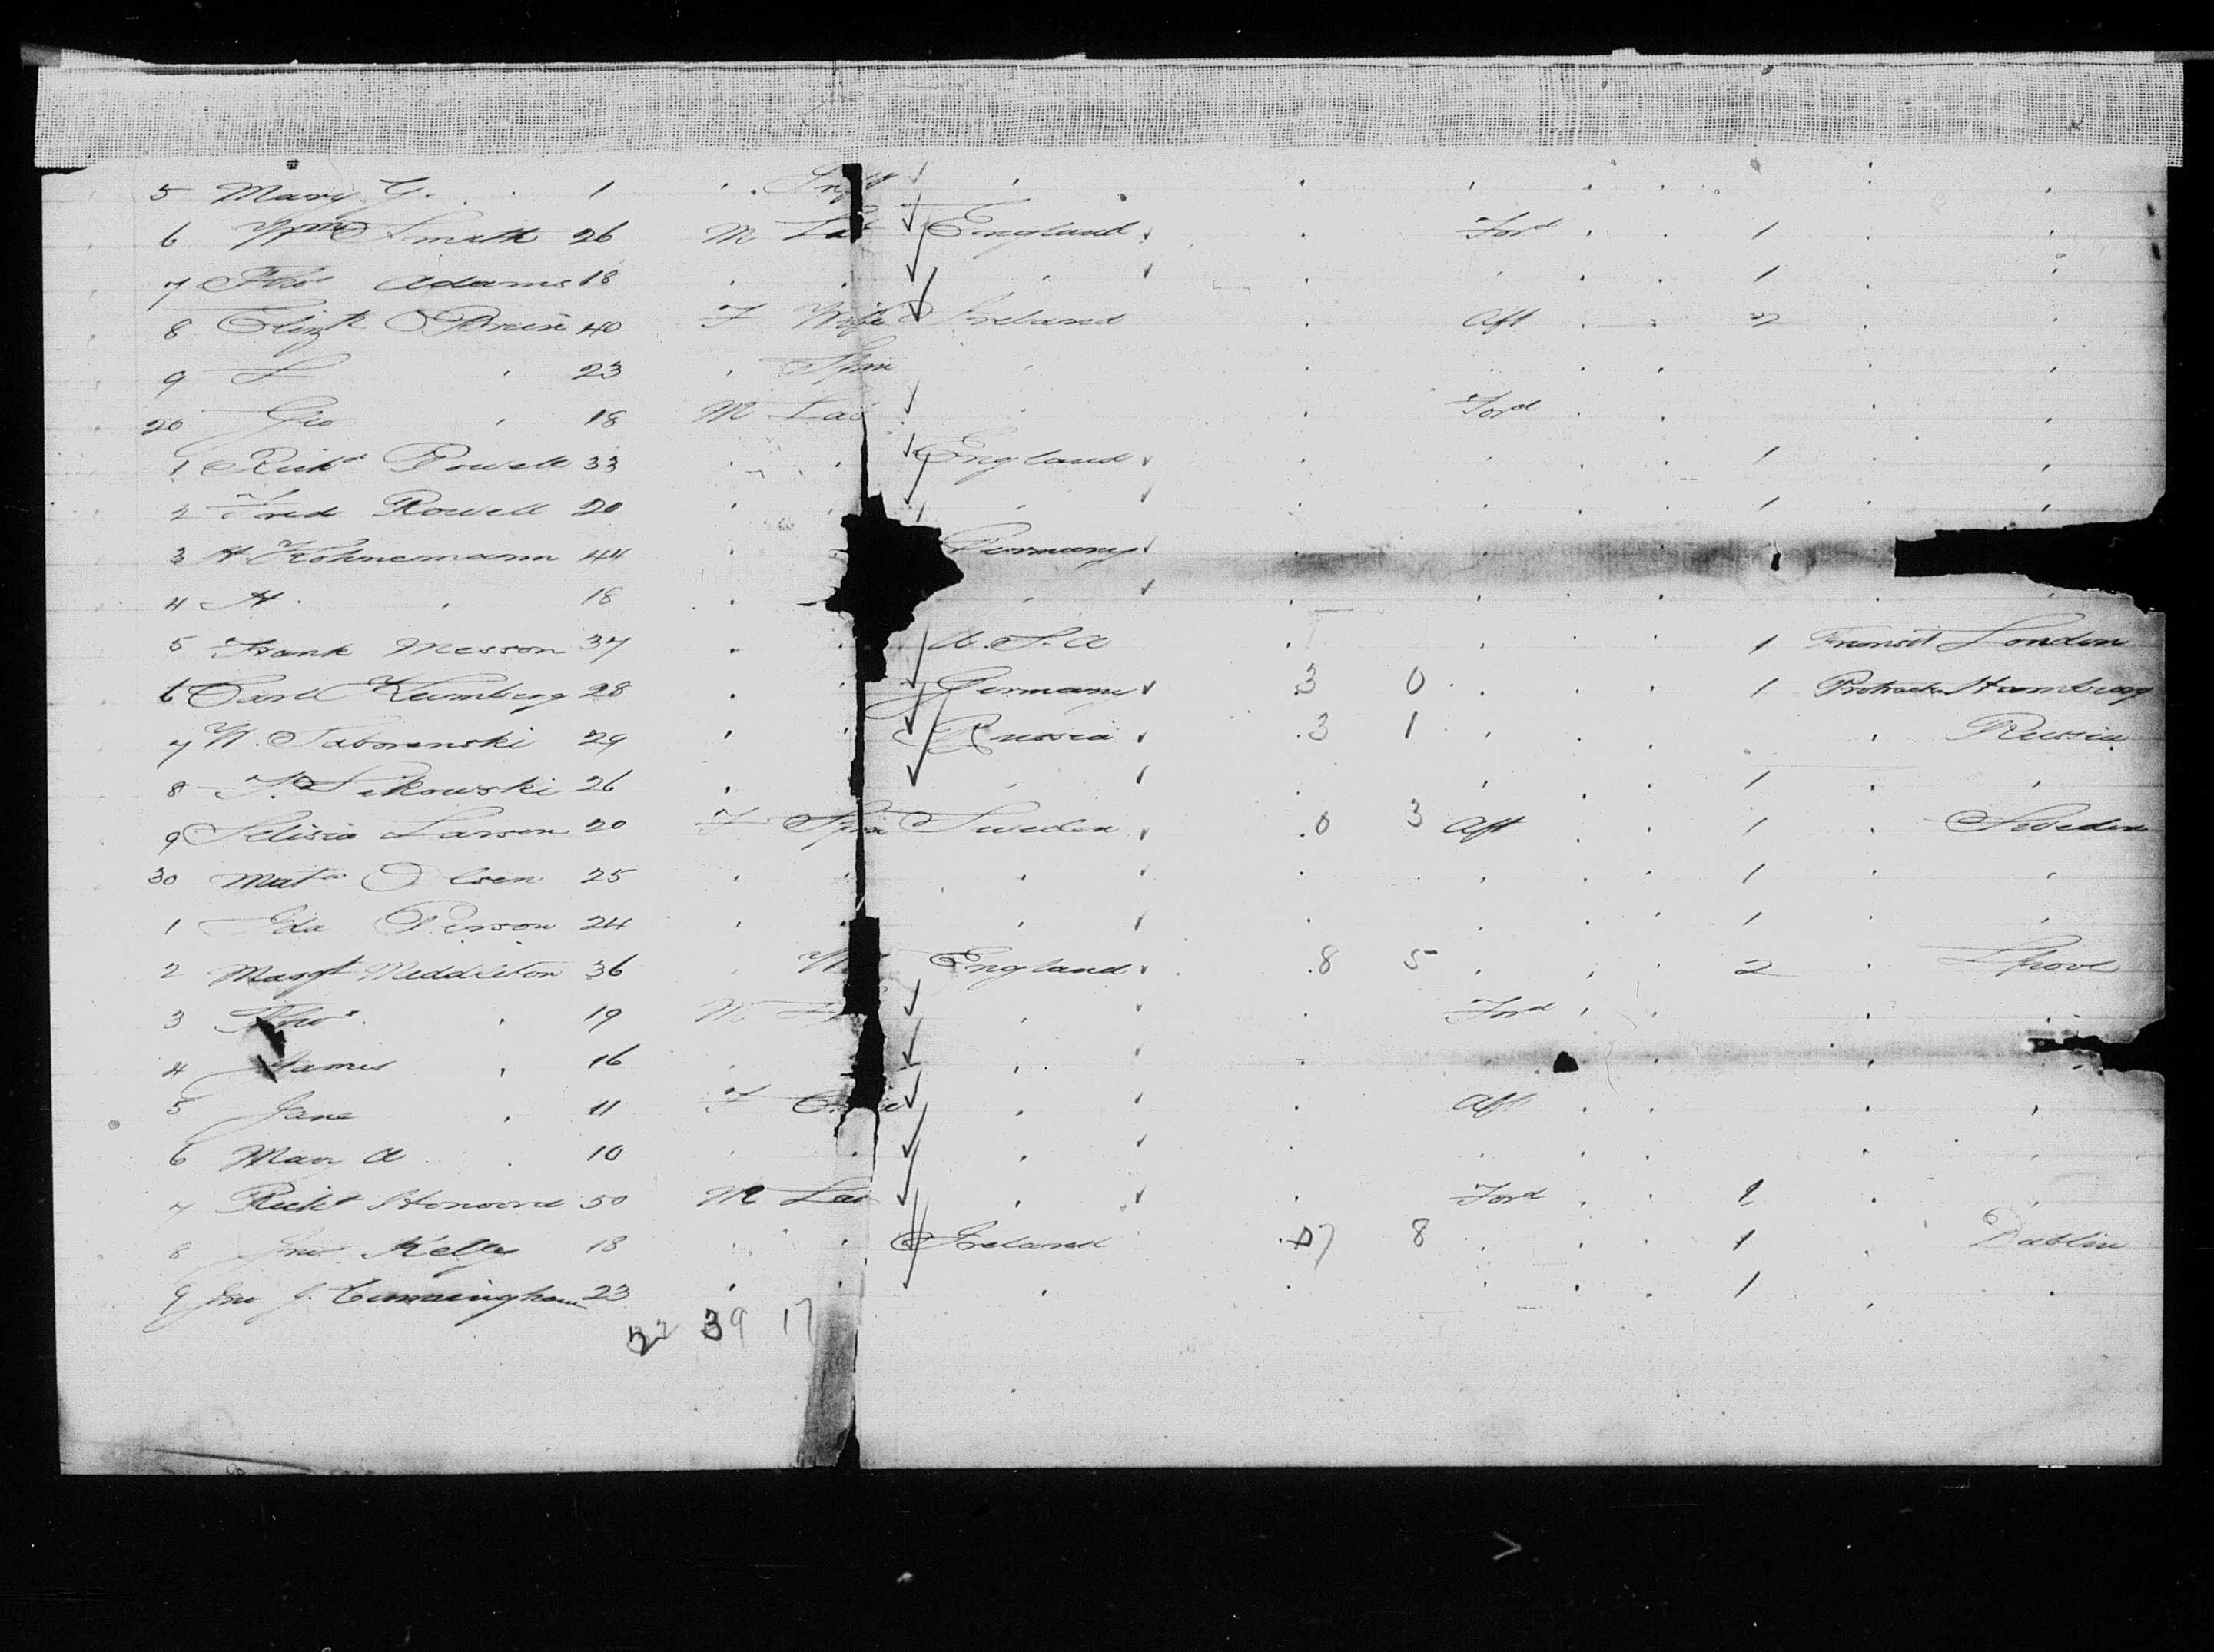 5 Mary G. . 1 . . Inft
6 Wm Smith 26 M Lab England . Ford . . 1 . .
7 Thos Adams 18 . . . . . . . 1 .
8 Elizth O'Brien 40 F Wife Ireland . Aft . . 2 . .
9 . 23 . Spin . . . . . .
20 Geo . 18 M Lab . . Ford . . .
1 Richd Powell 33 . . England . . . . 1 .
2 Fred Rowell 20 . . . . . . . 1 . .
3 H Kohnemann 44 . Germany .
4 H. . 18 . . . . . . . .
5 Frank Messon 37 . . U.S.A . . . . 1 Transit London
6 Carl 28 . . Germany 3 0 . . . . 1 Protracted Hamburg
7 W. Taboranski 29 . . Russia . 3 1 . . . . Russia
8 26 . . . . . . 1 . .
9 Larson 20 F Spin Sweden . 0 3 Aft . . 1 . Sweden
30 Mata Olsen 25 . . . . . . . . 1 . .
1 Ida Person 24 . . . . . . . 1 . .
2 Magt Middleton 36 . Wife England . 8 5 . . . 2 . Lpool
3 Thos . 19 M . . Ford . . . .
4 James . 16 . . . . . .
5 Jane . 11 F . . Aft . . . .
6 Mary A . 10 . . . . . . . . .
7 Richd 50 M Lab . . Ford . . 1 . .
8 Jno Kelly 18 . . Ireland . 7 8 . . . 1 . Dublin
9 Jno J. Cunningham 23 . . . . . . . 1 . .
22 39 17